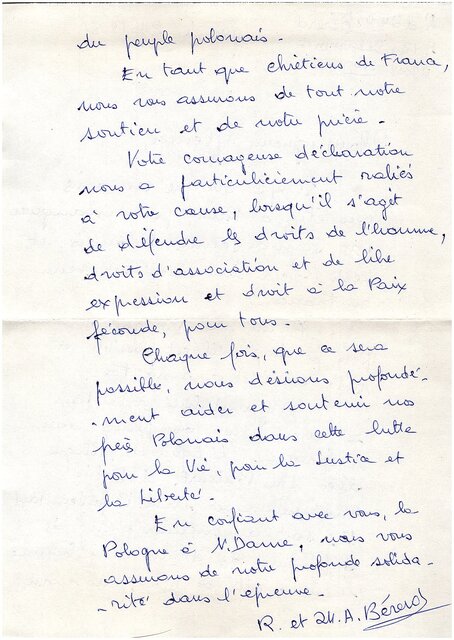 du peuple polonais.
En tant que chrétiens de France,
nous vous assurons de tout notre
soutien et de notre prière.
Votre courageuse déclaration
nous a particulièrement ralliés
à votre cause, lorsqu'il s'agit
de défendre les droits de l'homme,
droits d'association et de libre
expression et droit à la Paix
féconde, pour tous.
Chaque fois, que ce sera
possible, nous désirons profondé-
-ment aider et soutenir nos
frères Polonais dans cette lutte
pour la Vie, pour la Justice et
la Liberté.
En confiant avec vous, la
Pologne à N. Dame, nous vous
assurons de notre profonde solida-
-rité dans l'épreuve.
R. et M. A. Bérard